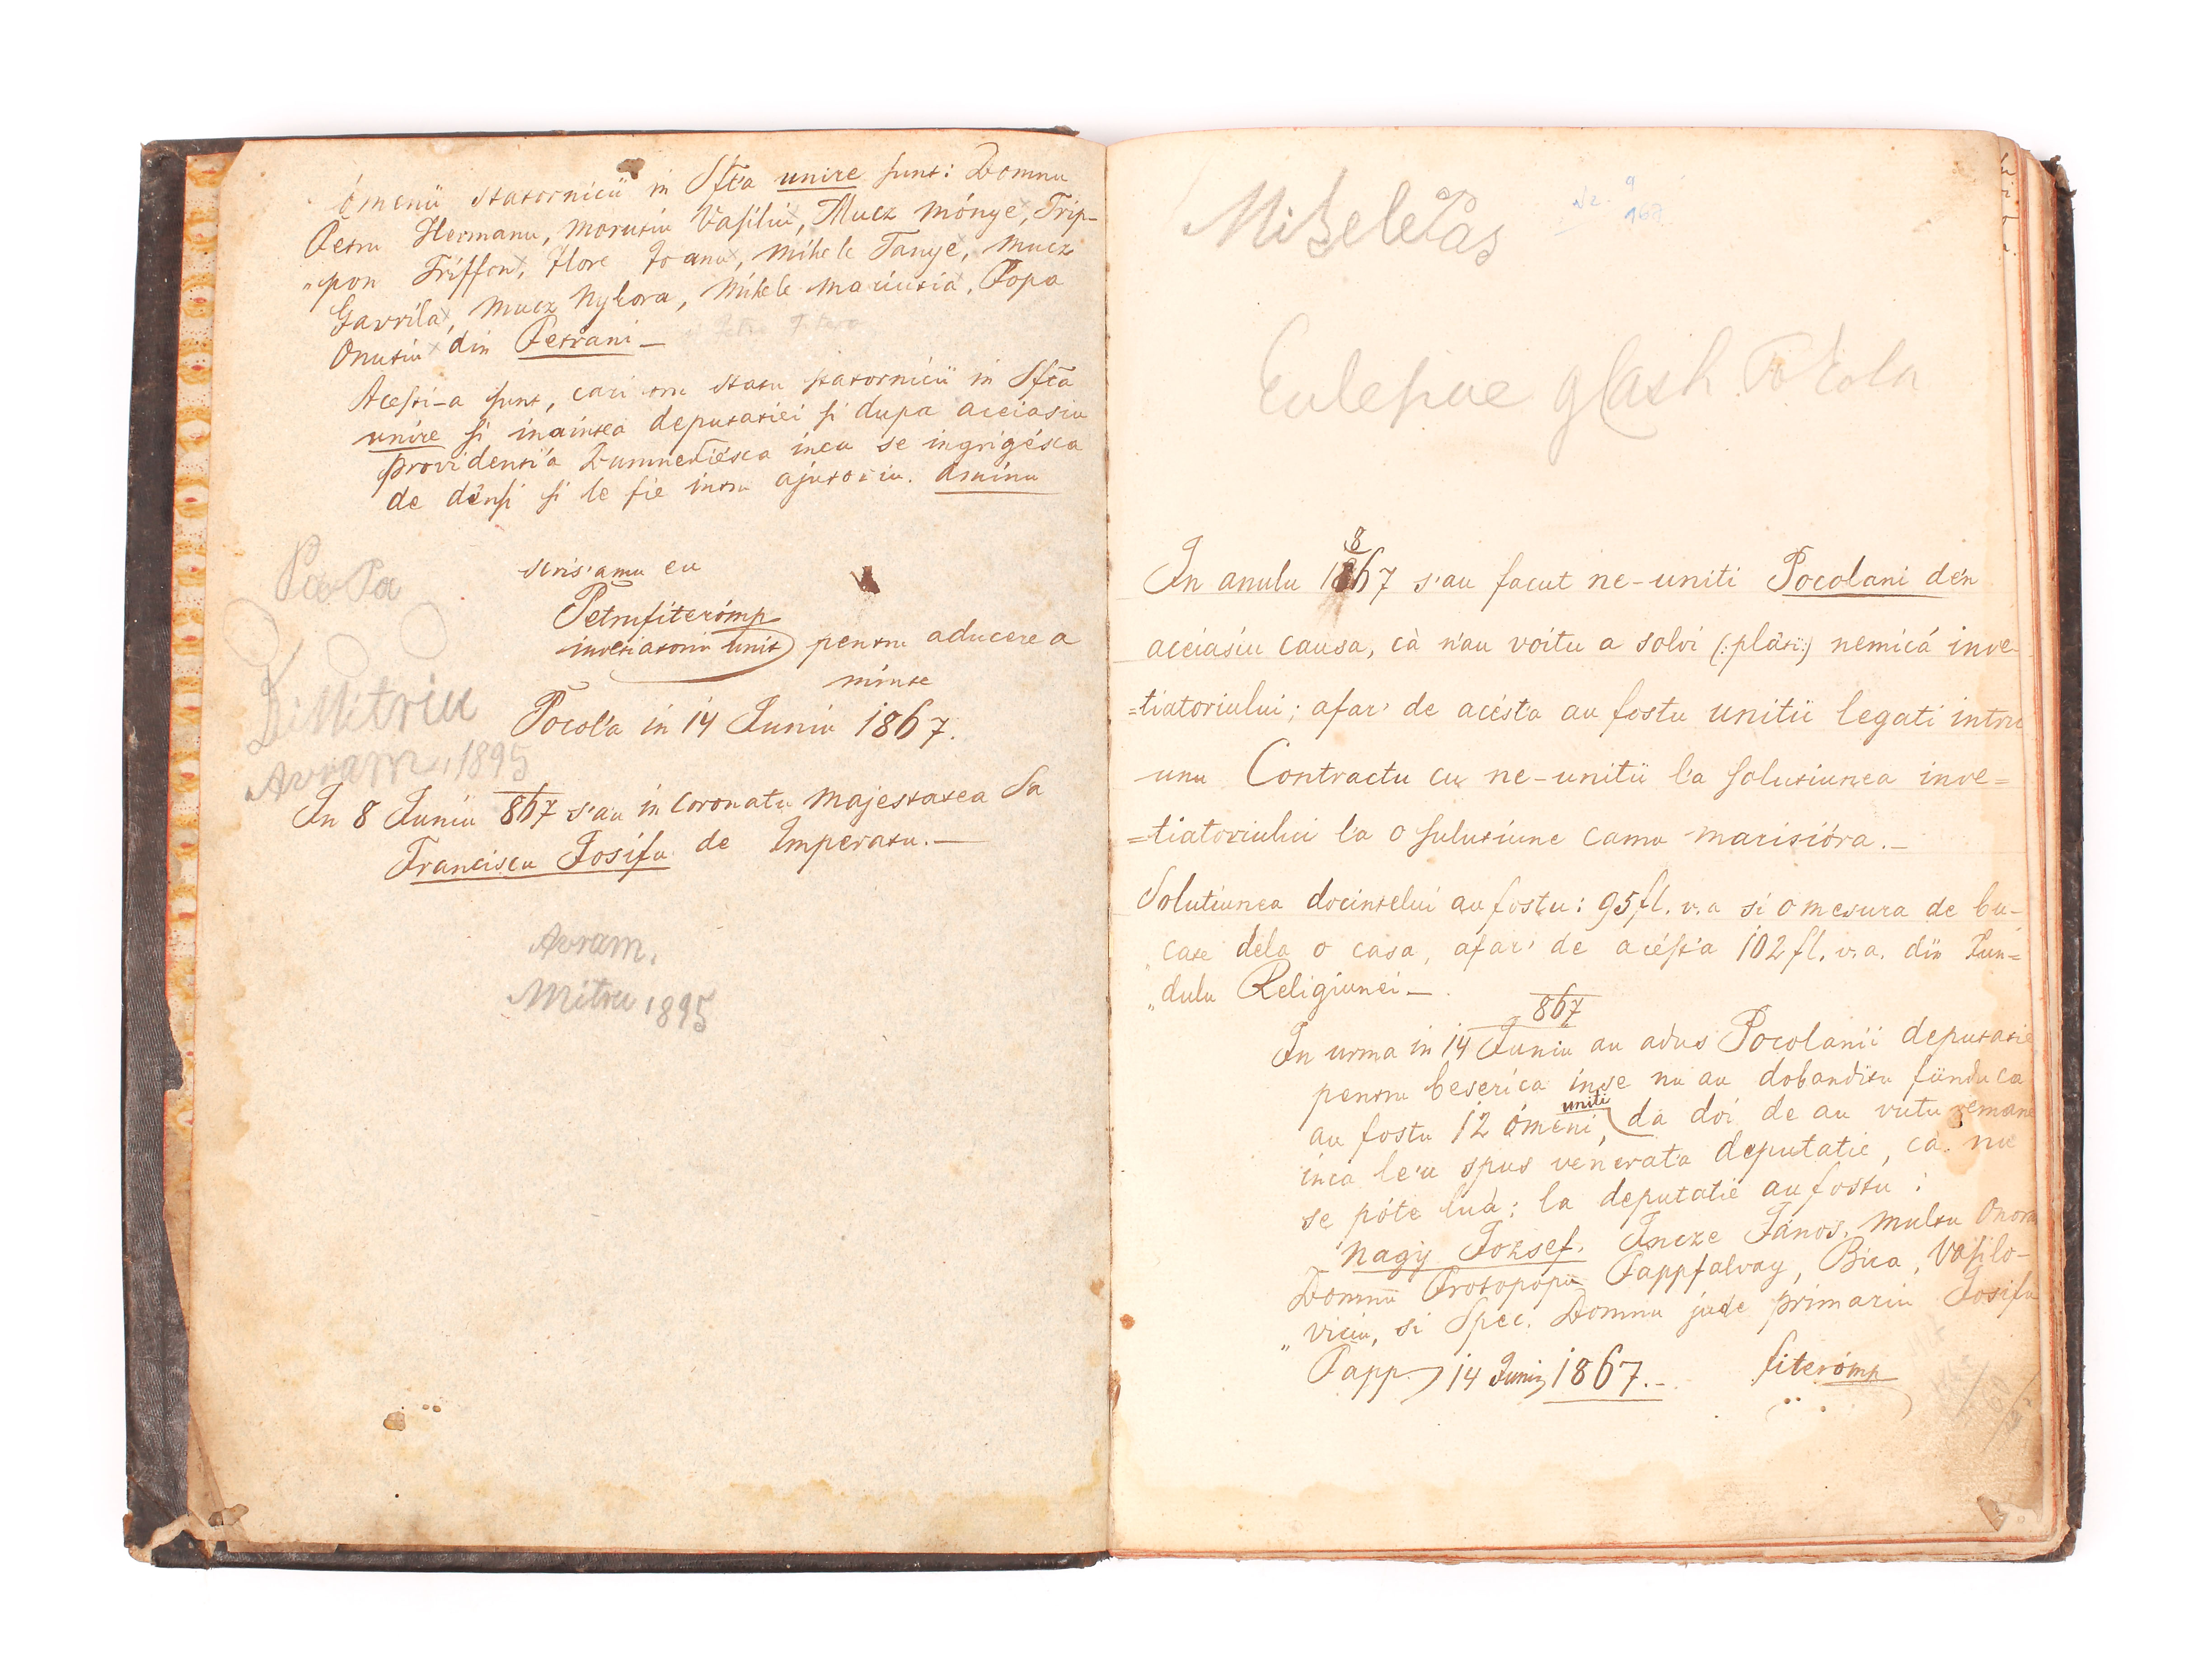 ómenii statornicii in Sf̃ta unire sunt: Domnu
Petru Hermanu, Morutiu Vasiliu, Mucz Mónye, Trip-
„pon Triffon, Flore Joanu, Mihele Tanye, Mucz
Gavrila, Mucz Nykora, Mihele Mariutia, Popa
Onutiu din Petrani —
Acesti-a sunt, cari au statu statornicii in Sf̃ta
unire si inaintea deputatiei si dupa aceiasiu
providenti'a Dumnedieésca inca se ingrigésca
de dênsi si le fie intru ajutoriu. Aminu
scris'amu eu
Petrufiterómp
invetiatoriu unit pentru aducere a
minte
Pocol'a in 14 Juniu 1867.
Dimitriu
Avram, 1895
In 8 Juniu 867 s'au in coronatu Majestatea Sa
Franciscu Josifu de Imperatu. —
Avram.
Mitru 1895
Nr. 9
167
In anulu 1867 s'au facut ne-uniti Pocolani den
8
aceiasiu causa, cà n'au voitu a solvi (:plăti:) nemicá inve-
=tiatoriului; afar' de acést'a au fostu unitii legati intru
unu Contractu cu ne-unitii l'a solutiunea inve=
=tiatoriului l'a o sulutiune camu marisióra. —
Solutiunea docintelui au fostu: 95 fl. v.a si o mesura de bu-
„cate dela o casa, afar' de acést'a 102 fl. v.a. din Fun=
„dulu Religiunei —.
867
In urma in 14 Juniu au adus Pocolanii deputatie
pentru beserica inse nu au dobanditu fiindu ca
au fostu 12 ómeni uniti, da doi de au vrutu remane
inca le'u spus venerat'a deputatie, ca nu
se póte luá: la deputatie au fostu:
Nagy József. Incze János. multu Onora
Domnu Protopopu Pappfalvay, Bica, Vasilo-
„viciu, si Spec. Domnu jude primariu Josifu
Papp. 14 Juniu 1867. — fiterómp